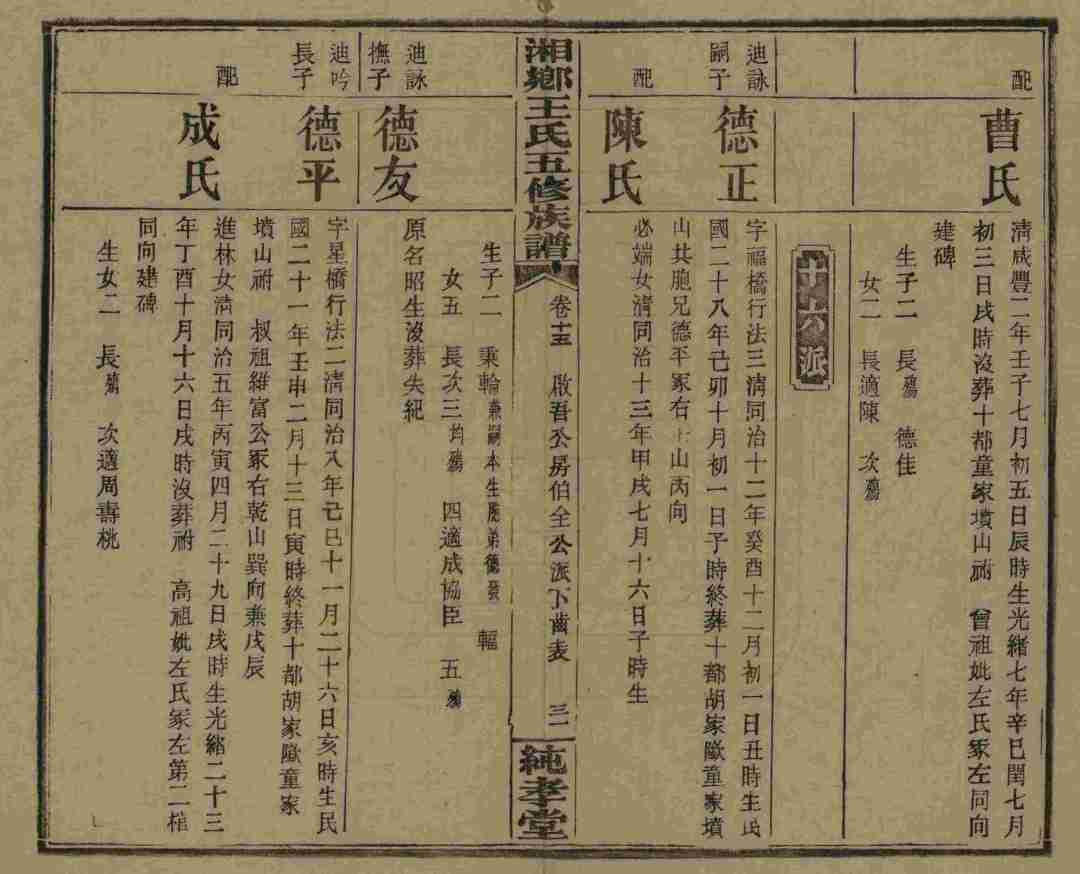 配
曹氏
清咸豐二年壬子七月初五日辰時生光緒七年辛巳閏七月
初三日戌時沒葬十都童家墳山祔　曾祖妣左氏冢左同向
建碑
生子二　長殤　德佳
女二　長適陳　次殤
十六派
迪詠
嗣子
德正
字福橋行法三清同治十二年癸酉十二月初一日丑時生民
國二十八年己卯十月初一日子時終葬十都胡家歐童家墳
山共胞兄德平冢右壬山丙向
配
陳氏
必端女清同治十三年甲戌七月十六日子時生
湘鄉王氏五修族譜
卷十五　啟吾公房伯全公派下齒表　三一
純孝堂
生子二　乘輪兼嗣本生胞弟德發　輻
女五　長次三均殤　四適成協臣　五殤
迪詠
撫子
德友
原名昭生沒葬失紀
迪吟
長子
德平
字星橋行法二清同治八年己巳十一月二十六日亥時生民
國二十一年壬申二月十三日寅時終葬十都胡家歐童家
墳山祔　叔祖維富公冢右乾山巽向兼戌辰
配
成氏
進林女清同治五年丙寅四月二十九日戌時生光緒二十三
年丁酉十月十六日戌時沒葬祔　高祖妣左氏冢左第二棺
同向建碑
生女二　長殤　次適周壽桃